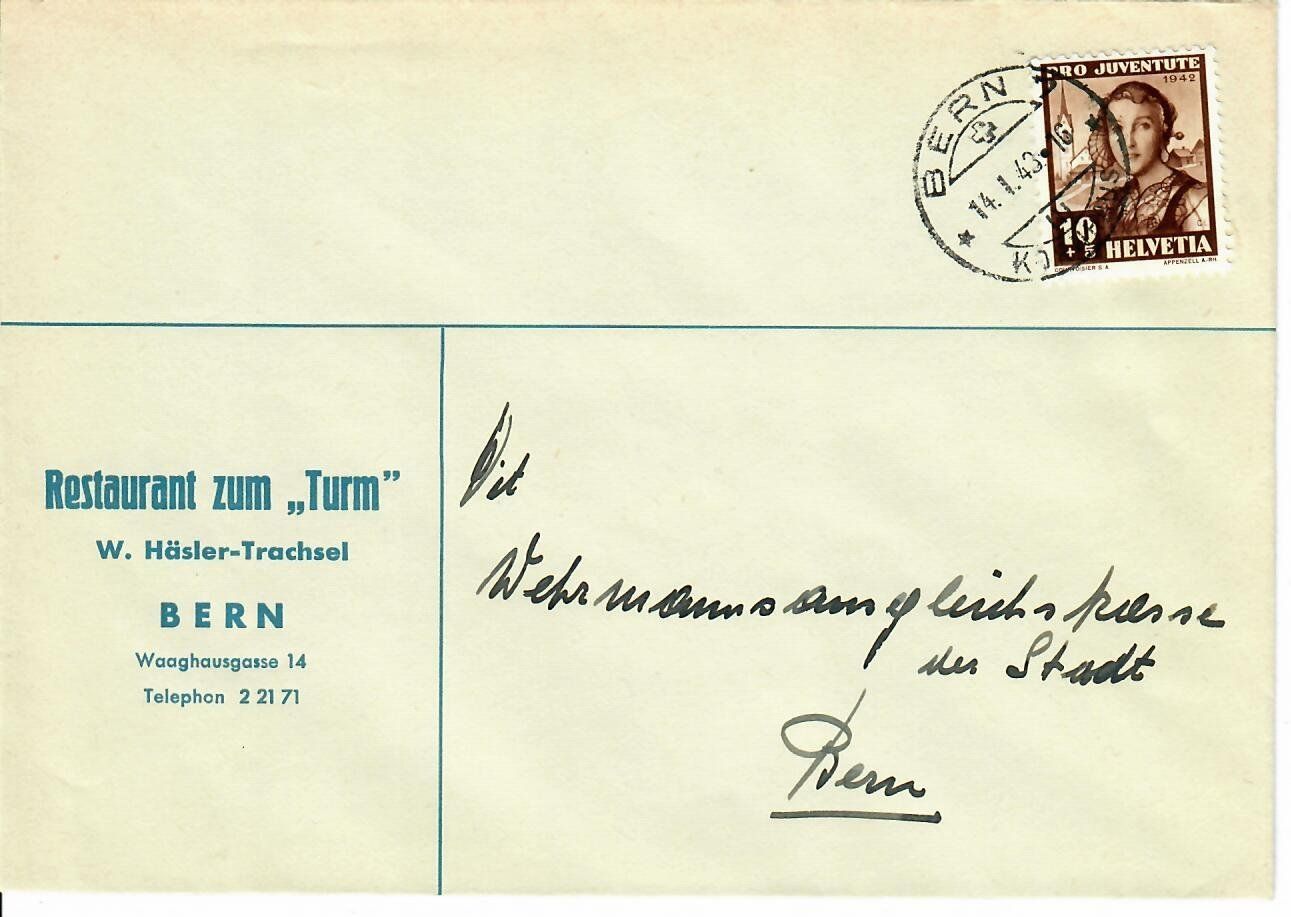 PRO JUVENTUTE
1942
BERN
14.1.43·16
10
+
5
HELVETIA
COURVOISIER S A
APPENZELL A.-RH.
Restaurant zum „Turm”
W. Häsler-Trachsel
BERN
Waaghausgasse 14
Telephon 2 21 71
Wehrmannsausgleichskasse
der Stadt
Bern